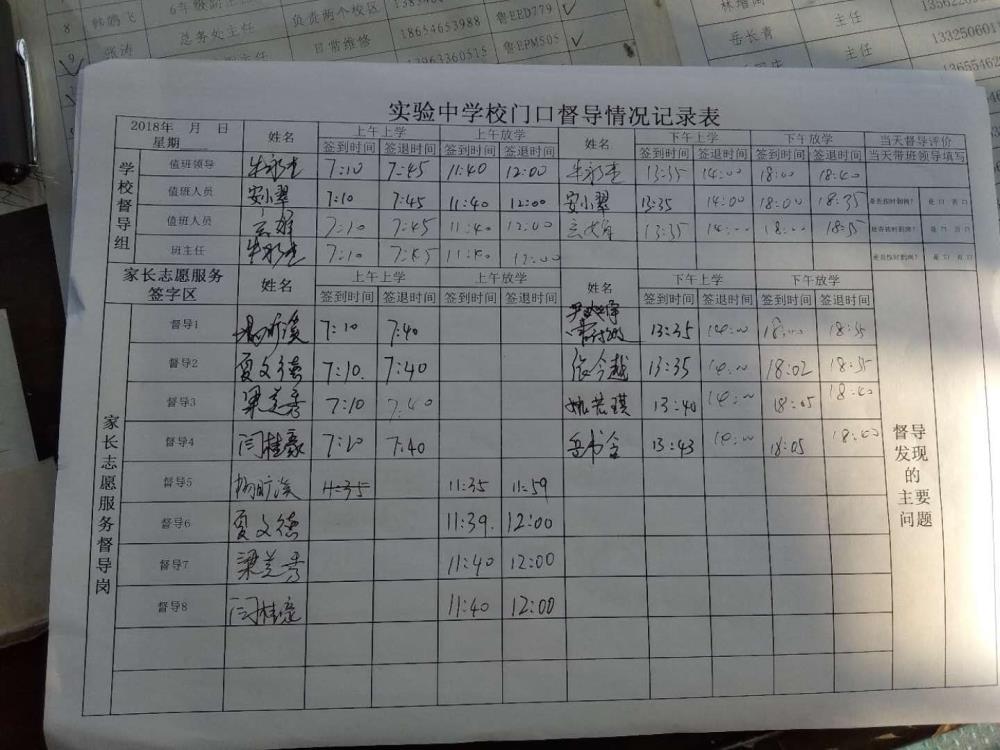 8 韩鹏飞 6年级副主任 负责两个校区
9 张涛 总务处主任 日常维修 18654653988 鲁EED779
13963360515 鲁EPM505
岳长青 主任
主任 133250601
主任 13655462
实验中学校门口督导情况记录表
2018年 月 日 星期 姓名 上午上学 上午放学 姓名 下午上学 下午放学 当天督导评价
签到时间 签退时间 签到时间 签退时间 签到时间 签退时间 签到时间 签退时间 当天带班领导填写
学校督导组
值班领导 牛永杰 7:10 7:45 11:40 12:00 牛永杰 13:35 14:00 18:00 18:40
值班人员 安小翠 7:10 7:45 11:40 12:00 安小翠 13:35 14:00 18:00 18:35 是否按时到岗? 是 口 否 口
值班人员 7:10 7:45 11:40 12:00 13:35 14:00 18:00 18:35 是否按时到岗? 是 口 否 口
班主任 牛永杰 7:10 7:45 11:40 12:00 是否按时到岗? 是 口 否 口
家长志愿服务签字区 姓名 上午上学 上午放学 姓名 下午上学 下午放学
签到时间 签退时间 签到时间 签退时间 签到时间 签退时间 签到时间 签退时间
家长志愿服务督导岗
督导1 杨昕溪 7:10 7:40 13:35 14:00 18:00 18:35
督导2 夏文德 7:10 7:40 张今越 13:35 14:00 18:02 18:35
督导3 梁芝秀 7:10 7:40 姚芸琪 13:40 14:00 18:05 18:40
督导4 闫桂豪 7:10 7:40 岳书全 13:43 14:00 18:05 18:00
督导5 杨昕溪 4:35 11:35 11:59
督导6 夏文德 11:39 12:00
督导7 梁芝秀 11:40 12:00
督导8 闫桂豪 11:40 12:00
督导发现的主要问题